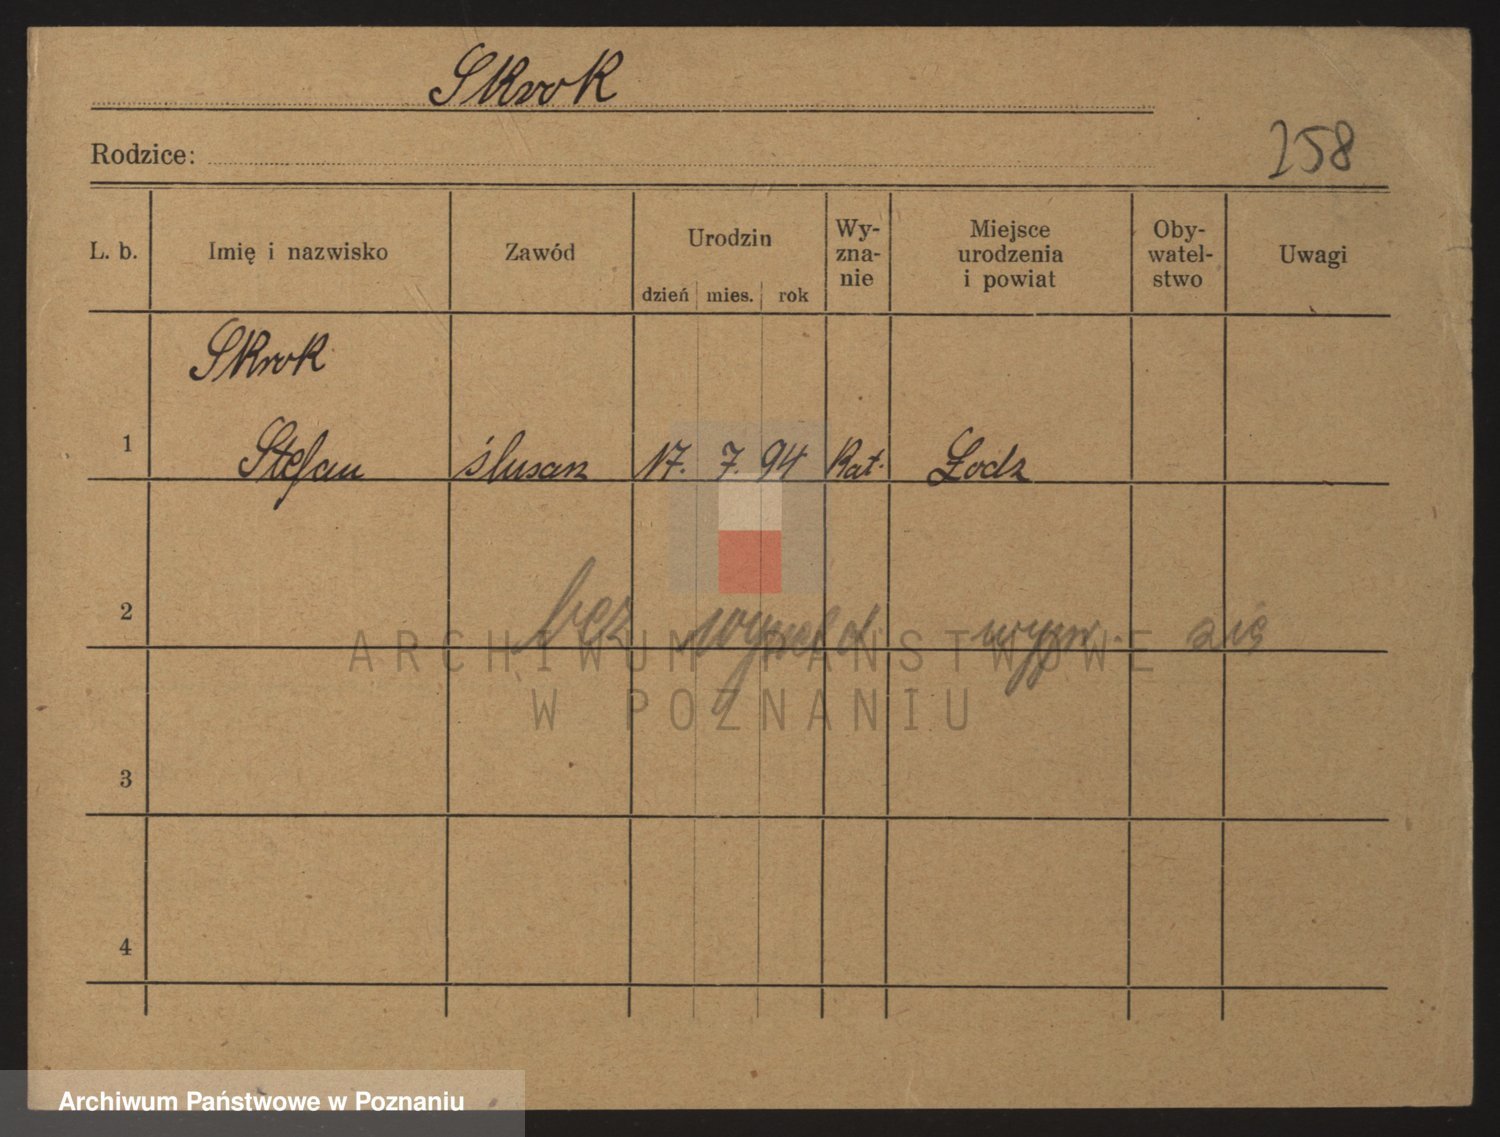 Skrok
Rodzice:
258
L. b. Imię i nazwisko Zawód Urodzin dzień mies. rok Wy-zna-nie Miejsce urodzenia i powiat Oby-watel-stwo Uwagi
Skrok
1 Stefan ślusarz 17. 7. 94 Kat. Łodz
2 bez wymeld. wypr. się
ARCHIWUM PAŃSTWOWE
W POZNANIU
3
4
Archiwum Państwowe w Poznaniu